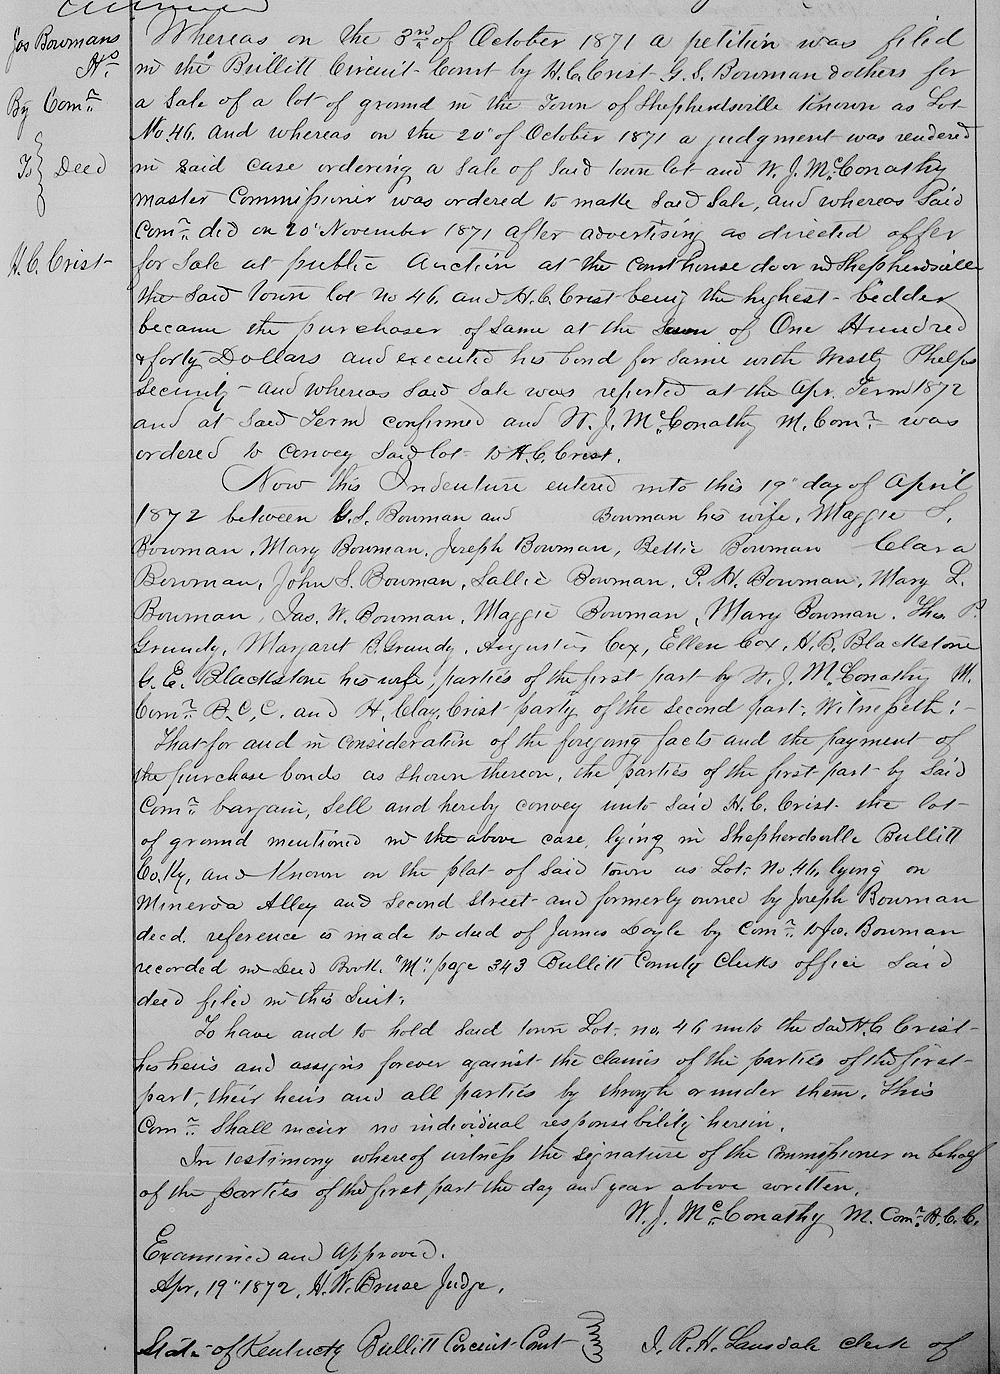 Jos Bowmans
Hs
By Comr
To } Deed
H. C. Crist
Whereas on the 3rd of October 1871 a petition was filed
in the Bullitt Circuit Court by H. C. Crist G. S. Bowman & others for
a Sale of a lot of ground in the Town of Shepherdsville Known as Lot
No 46. and whereas on the 20" of October 1871 a judgment was rendered
in said case ordering a Sale of Said town lot and W. J. McConathy
Master Commissioner was ordered to make Said Sale, and whereas Said
Comr. did on 20" November 1871 after advertising as directed offer
for Sale at public Auction at the Courthouse door in Shepherdsville
the Said town lot no 46. and H. C. Crist being the highest bidder
became the purchaser of Same at the Sum of One Hundred
& forty Dollars and executed his bond for Same with Phelps
Security and whereas Said Sale was reported at the Apr. Term 1872
and at Said Term confirmed and W. J. McConathy M. Comr. was
ordered to convey Said lot to H. C. Crist.
Now this Indenture entered into this 19" day of April
1872 between G. S. Bowman and Bowman his wife, Maggie S.
Bowman, Mary Bowman, Joseph Bowman, Bettie Bowman Clara
Bowman, John S. Bowman, Sallie Bowman, P. H. Bowman, Mary L.
Bowman, Jas. W. Bowman, Maggie Bowman, Mary Bowman. Thos. P.
Grundy, Margaret R. Grundy, Augustus Cox, Ellen Cox, H. B. Blackstone
G. E. Blackstone his wife, parties of the first part by W. J. McConathy M.
Comr. B. C. C. and H. Clay Crist party of the second part, Witnesseth:-
That for and in consideration of the foregoing facts and the payment of
the purchase bonds as shown thereon, the parties of the first part by Said
Comr. bargain, Sell and hereby convey unto Said H. C. Crist the lot
of ground mentioned in the above case, lying in Shepherdsville Bullitt
Co. Ky. and Known on the plat of Said town as Lot. No. 46, lying on
Minerva Alley and Second Street and formerly owned by Joseph Bowman
decd. reference is made to deed of James Doyle by Comr. to Jo. Bowman
recorded in Deed Book "M" page 343 Bullitt County Clerks office Said
deed filed in this Suit.
To have and to hold Said town Lot no. 46 unto the Said H. C. Crist
his heirs and assigns forever against the claims of the parties of the first
part, their heirs and all parties by through or under them. This
Comr. Shall incur no individual responsibility herein.
In testimony whereof witness the signature of the Commissioner on behalf
of the parties of the first part the day and year above written.
W. J. McConathy M. Comr. B. C. C.
Examined and Approved.
Apr. 19" 1872, H. W. Bruce Judge.
State of Kentucky Bullitt Circuit Court } I. R. H. Lansdale clerk of